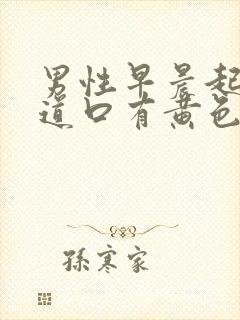 男性早晨起
道口有黄色
孫寒家